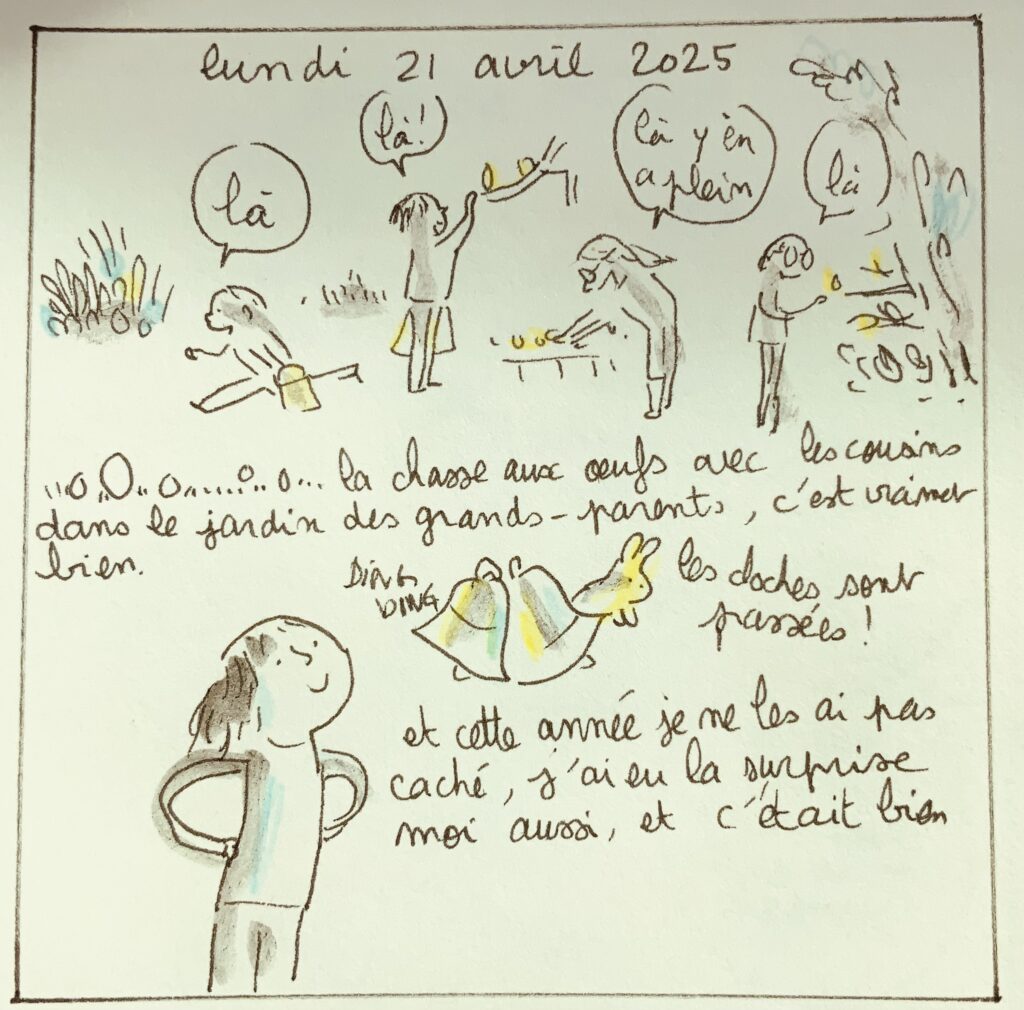 lundi 21 avril 2025
là
là!
là y'en
a plein
là
la chasse aux œufs avec les cousins
dans le jardin des grands-parents, c'est vraiment
bien.
DING
DING
les cloches sont
passées!
et cette année je ne les ai pas
caché, j'ai eu la surprise
moi aussi, et c'était bien